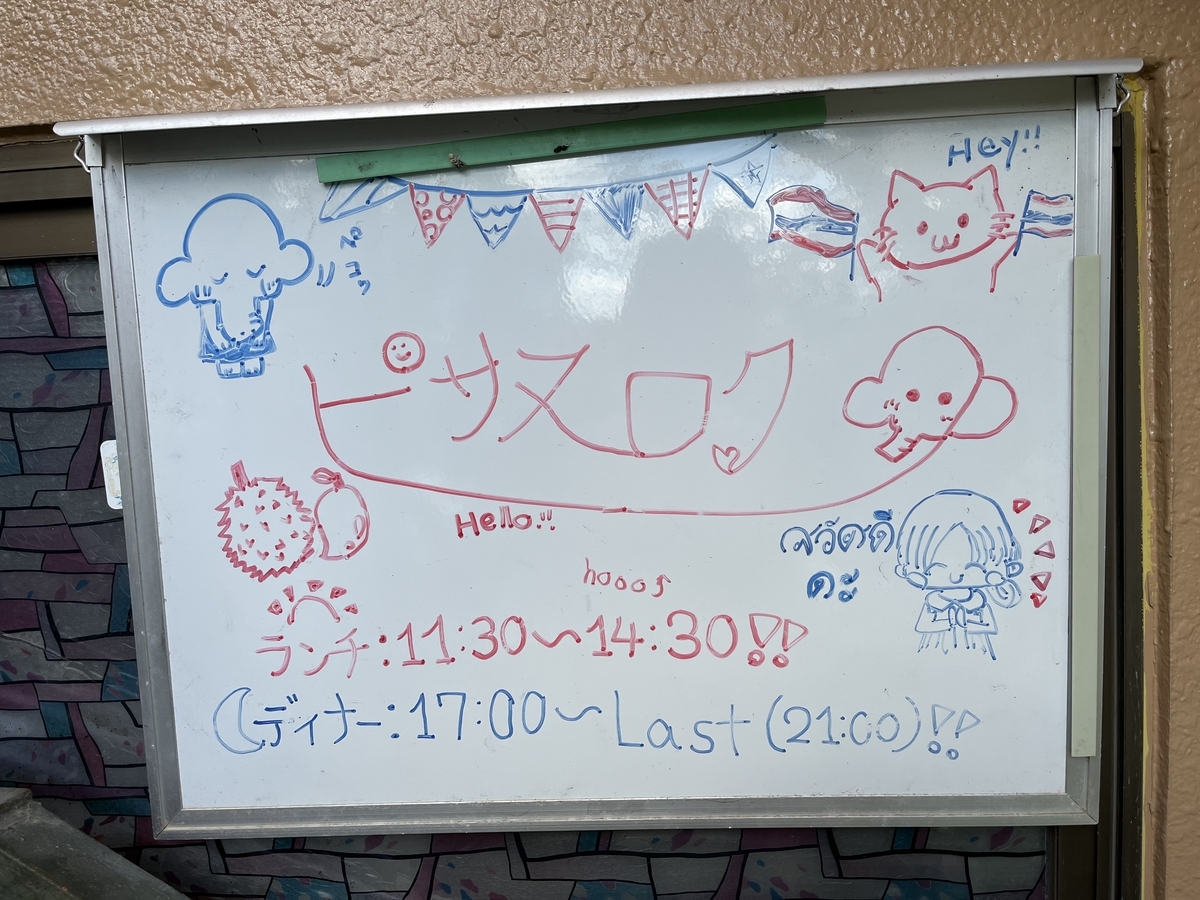 Hey!!
ピサヌロク
Hello!!
สวัสดี
คะ
ランチ:11:30〜14:30!!
ディナー:17:00〜Last(21:00)!!